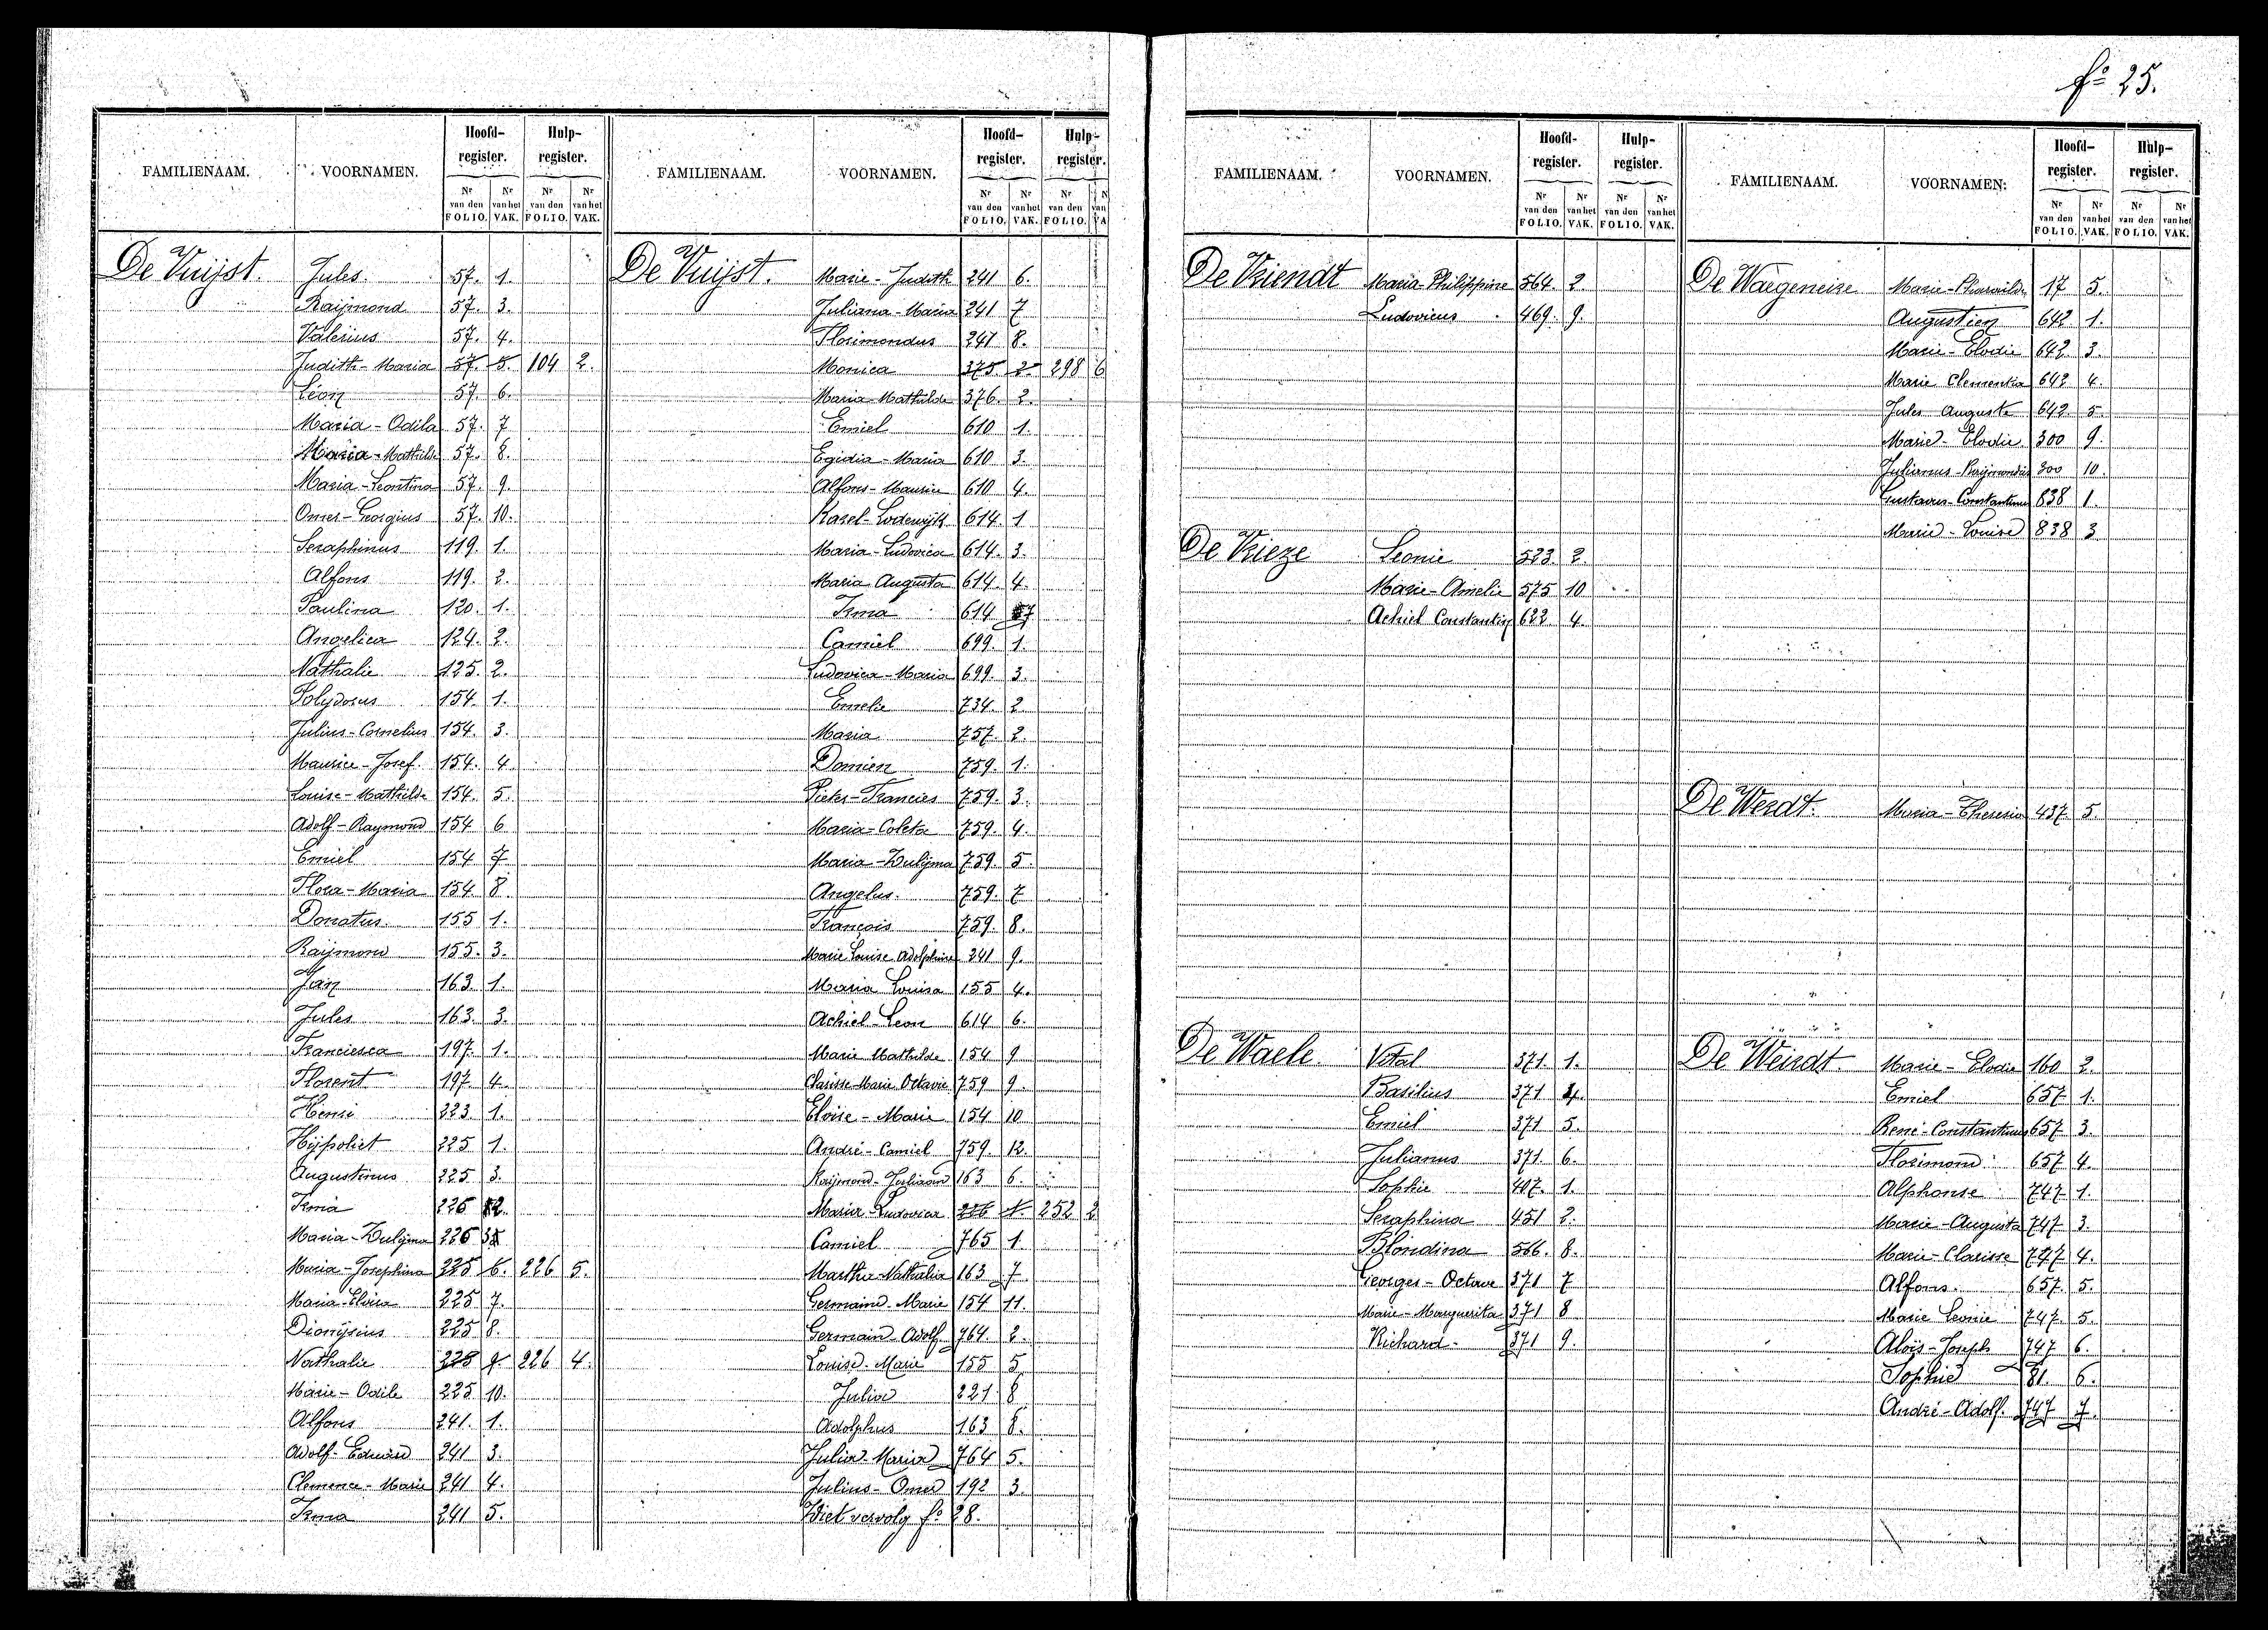 fo 25.
FAMILIENAAM. VOORNAMEN. Hoofd-register. Hulp-register.
Nr van den FOLIO. Nr van het VAK. Nr van den FOLIO. Nr van het VAK.
De Vuijst. Jules 57. 1.
Raijmond 57. 3.
Valerius 57. 4.
Judith-Maria 57. 5. 104 2.
Léon 57. 6.
Maria-Odila 57. 7
Maria-Mathilde 57. 8.
Maria-Leontina 57. 9.
Omer-Georgius 57. 10.
Seraphinus 119. 1.
Alfons 119. 2.
Paulina 120. 1.
Angelica 124. 2.
Nathalie 125. 2.
Polydorus 154. 1.
Julius-Cornelius 154. 3.
Maurice-Josef 154. 4.
Louise-Mathilde 154. 5.
Adolf-Raymond 154 6
Emiel 154 7
Flora-Maria 154 8.
Donatus 155 1.
Raijmond 155. 3.
Jan 163 1.
Jules 163. 3.
Franciesca 197. 1.
Florent 197. 4.
Henri 223 1.
Hijpoliet 225 1.
Augustinus 225 3.
Irma 226 2.
Maria-Zulijma 226
Maria-Josephina 225 6. 226 5.
Maria-Elvira 225 7.
Dionijsius 225 8.
Nathalie 225 9 226 4.
Marie-Odile 225 10.
Alfons 241. 1.
Adolf-Eduard 241 3.
Clemence-Marie 241 4.
Irma 241 5.
FAMILIENAAM. VOORNAMEN. Hoofd-register. Hulp-register.
Nr van den FOLIO. Nr van het VAK. Nr van den FOLIO.
De Vuijst. Marie-Judith 241 6.
Juliana-Maria 241 7
Florimondus 241 8.
Monica 375 2 298 6
Maria-Mathilde 376. 2.
Emiel 610 1.
Egidia-Maria 610 3.
Alfons-Maurice 610 4.
Karel-Lodewijk 614. 1
Maria-Ludovica 614. 3.
Maria Augusta 614. 4.
Irma 614 7
Camiel 699. 1.
Ludovica-Maria 699. 3.
Emelie 734. 2
Maria 757. 2.
Domien 759. 1.
Pieter-Francies 759. 3.
Maria-Coleta 759. 4.
Maria-Zulijma 759. 5.
Angelus 759. 7
François 759. 8.
Marie Louise Adolphine 241 9.
Maria Louisa 155 4.
Achiel-Leon 614 6.
Marie Mathilde 154 9
Clarisse Marie Octavie 759 9.
Eloise-Marie 154 10
André-Camiel 759. 12.
Raijmond-Juliaan 163 6.
Maria-Ludovica 226 1. 252 2
Camiel 765 1.
Martha-Nathalia 163 7
Germaine-Marie 154 11.
Germain-Adolf 764. 2.
Louise-Marie 155 5
Julia 221. 8
Adolphus 163 8.
Julia-Maria 764 5.
Julius-Omer 192 3.
Ziet vervolg fo 28.
FAMILIENAAM. VOORNAMEN. Hoofd-register. Hulp-register.
Nr van den FOLIO. Nr van het VAK. Nr van den FOLIO. Nr van het VAK.
De Vriendt Maria-Philippine 564. 2.
Ludovicus 469. 9.
De Vrieze Leonie 523. 2.
Marie-Amelie 575 10
Achiel Constantin 622. 4.
De Waele Vital 371. 1.
Basilius 371 4.
Emiel 371 5.
Julianus 371. 6.
Sophie 407. 1.
Seraphina 451 2.
Blondina 566. 8.
Georges-Octave 371 7
Marie-Marguerita 371 8
Richard 371 9.
FAMILIENAAM. VOORNAMEN. Hoofd-register. Hulp-register.
Nr van den FOLIO. Nr van het VAK. Nr van den FOLIO. Nr van het VAK.
De Waegeneire 17 5.
Augustien 642 1.
Marie-Elodie 642 3.
Marie Clementia 642 4.
Jules Auguste 642 5.
Marie-Elodie 300 9.
Julianus-Raijmondus 300 10.
Gustavus-Constantinus 838 1.
Marie-Louise 838 3
De Werdt. Maria-Theresia 437. 5.
De Weirdt. Marie-Elodie 160 2.
Emiel 657 1.
René-Constantinus 657 3.
Florimond 657 4.
Alphonse 747 1.
Marie-Augusta 747 3.
Marie-Clarisse 747 4.
Alfons 657. 5.
Marie Leonie 747. 5.
Aloijs-Joseph 747 6.
Sophie 81. 6.
André-Adolf. 747 7.